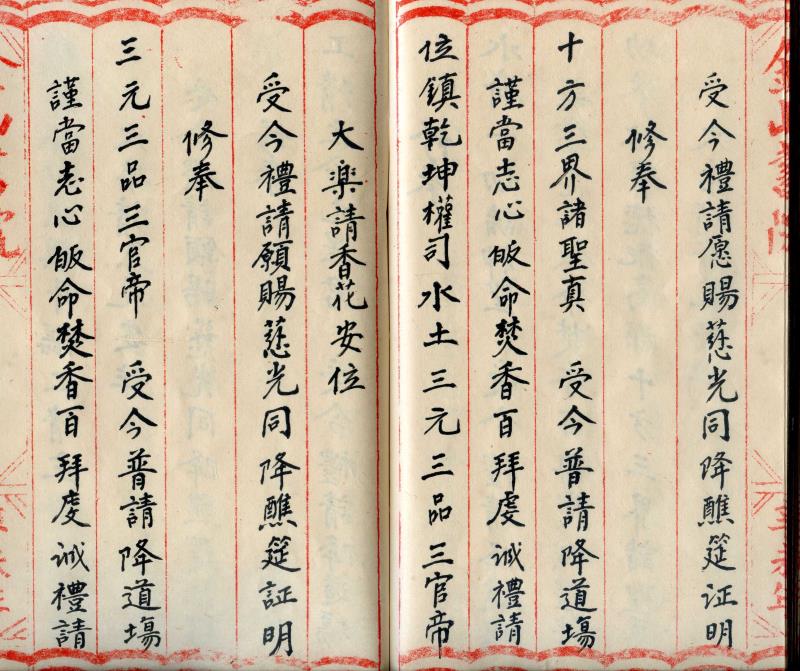 受今禮請愿賜慈光同降醮筵证明
修奉
十方三界諸聖真 受今普請降道塲
謹當志心皈命焚香百拜虔诚禮請
位鎮乾坤權司水土三元三品三官帝
大楽請香花安位
受今禮請願賜慈光同降醮筵証明
修奉
三元三品三官帝 受今普請降道塲
謹當志心皈命焚香百拜虔诚禮請